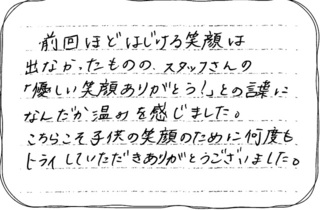 前回ほどはじける笑顔は
出なかったものの、スタッフさんの
「優しい笑顔ありがとう!」との言葉に
なんだか温みを感じました。
こちらこそ子供の笑顔のために何度も
トライしていただきありがとうございました。